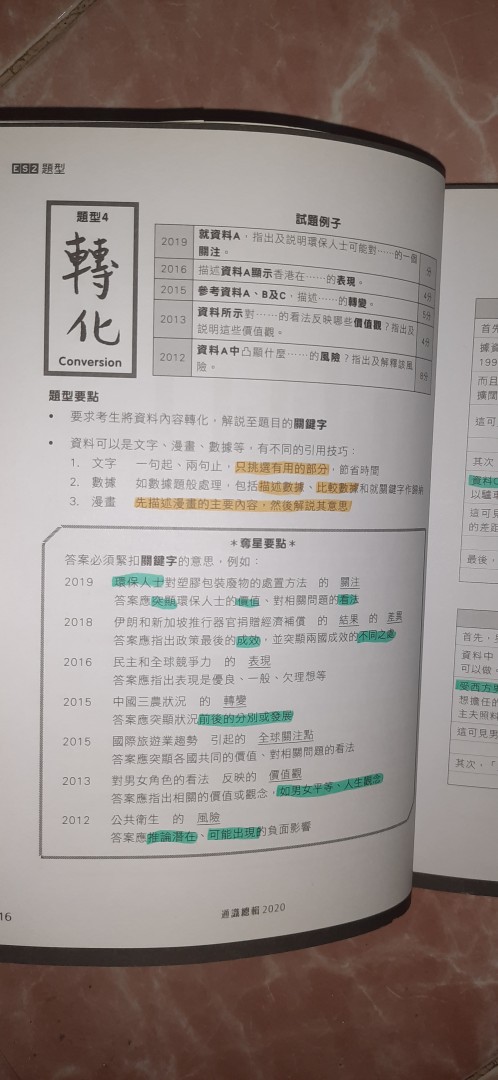 ES2 題型
題型4
轉化
Conversion
試題例子
2019 就資料A，指出及說明環保人士可能對……的一個
關注。
分
2016 描述資料A顯示香港在……的表現。 4分
2015 參考資料A、B及C，描述……的轉變。 5分
2013 資料所示對……的看法反映哪些價值觀？指出及
說明這些價值觀。
4分
2012 資料A中凸顯什麼……的風險？指出及解釋該風
險。
6分
題型要點
• 要求考生將資料內容轉化，解說至題目的關鍵字
• 資料可以是文字、漫畫、數據等，有不同的引用技巧：
1. 文字 一句起、兩句止，只挑選有用的部分，節省時間
2. 數據 如數據題般處理，包括描述數據、比較數據和就關鍵字作歸納
3. 漫畫 先描述漫畫的主要內容，然後解說其意思
＊奪星要點＊
答案必須緊扣關鍵字的意思，例如：
2019 環保人士對塑膠包裝廢物的處置方法 的 關注
答案應突顯環保人士的價值、對相關問題的看法
2018 伊朗和新加坡推行器官捐贈經濟補償 的 結果 的 差異
答案應指出政策最後的成效，並突顯兩國成效的不同之處
2016 民主和全球競爭力 的 表現
答案應指出表現是優良、一般、欠理想等
2015 中國三農狀況 的 轉變
答案應突顯狀況前後的分別或發展
2015 國際旅遊業趨勢 引起的 全球關注點
答案應突顯各國共同的價值、對相關問題的看法
2013 對男女角色的看法 反映的 價值觀
答案應指出相關的價值或觀念，如男女平等、人生觀念
2012 公共衛生 的 風險
答案應推論潛在、可能出現的負面影響
16
通識總輯 2020
首先
據資
199
而且
擴闊
這可
其次
資料C
以驢車
這可見
的差距
最後，
首先，
資料中
可以做，
受西方男
想擔任的
主夫照料
這可見男
其次，「